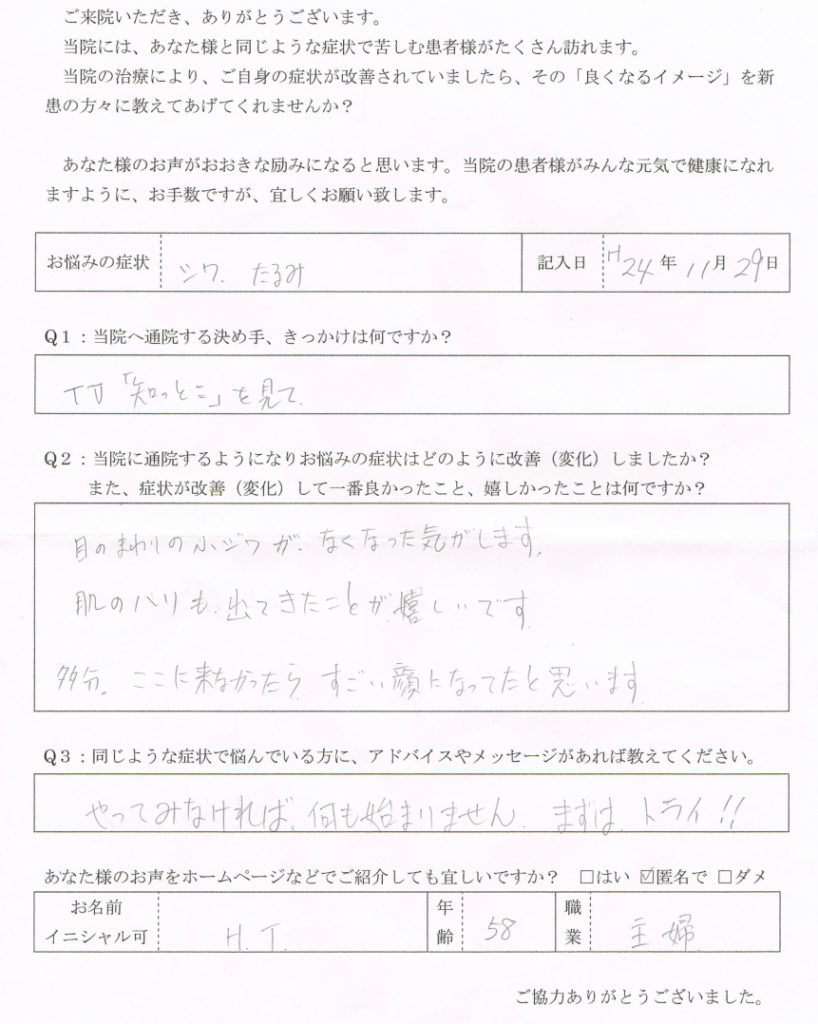 ご来院いただき、ありがとうございます。
当院には、あなた様と同じような症状で苦しむ患者様がたくさん訪れます。
当院の治療により、ご自身の症状が改善されていましたら、その「良くなるイメージ」を新
患の方々に教えてあげてくれませんか？
あなた様のお声がおおきな励みになると思います。当院の患者様がみんな元気で健康になれ
ますように、お手数ですが、宜しくお願い致します。
お悩みの症状 シワ、たるみ 記入日 H24年11月29日
Q１：当院へ通院する決め手、きっかけは何ですか？
「知っとこ」を見て
Q２：当院に通院するようになりお悩みの症状はどのように改善（変化）しましたか？
また、症状が改善（変化）して一番良かったこと、嬉しかったことは何ですか？
目のまわりの小ジワが、なくなった気がします。
肌のハリも、出てきたことが嬉しいです
多分。ここに来なかったら、すごい顔になってたと思います
Q３：同じような症状で悩んでいる方に、アドバイスやメッセージがあれば教えてください。
やってみなければ、何も始まりません、まずは、トライ!!
あなた様のお声をホームページなどでご紹介しても宜しいですか？ □はい ☑匿名で □ダメ
お名前 イニシャル可 H.T. 年齢 58 職業 主婦
ご協力ありがとうございました。